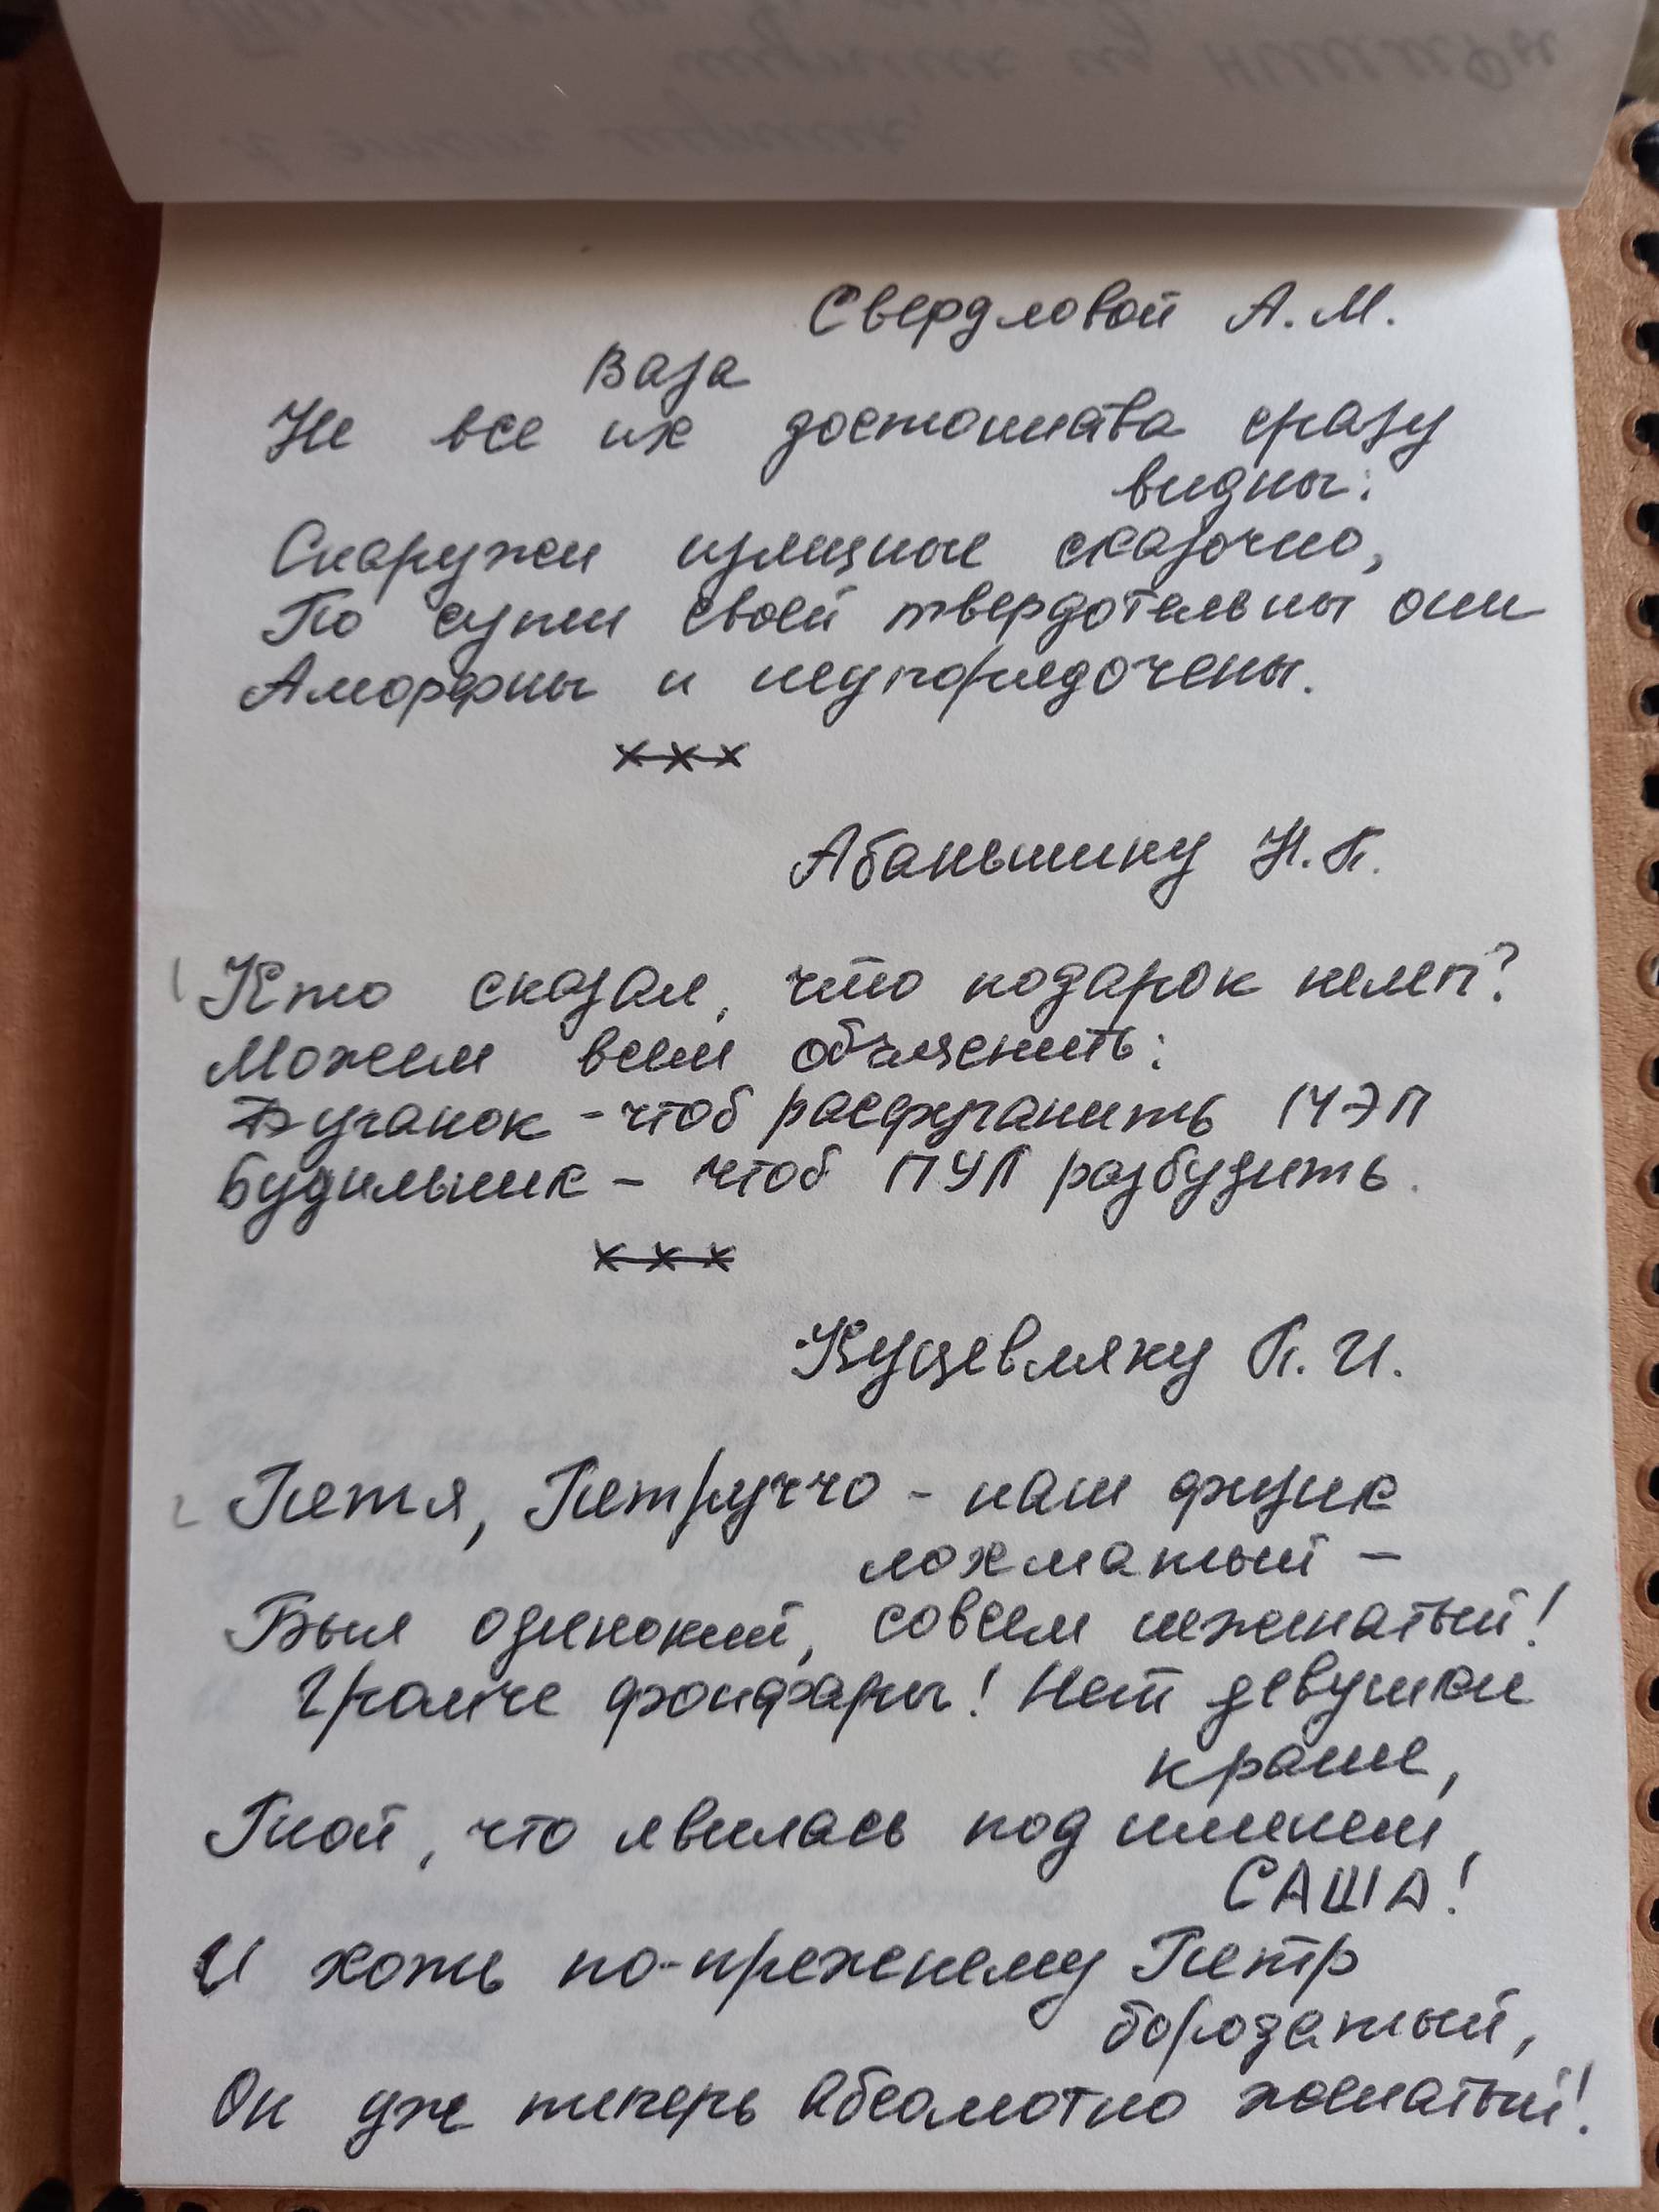 Свердловой А.М.
Ваза
Не все их достоинства сразу
видны:
Снаружи изящные сказочно,
По сути своей твердотельны они
Аморфны и неупорядочены.
×××
Абаньшину Н.П.
Кто сказал, что подарок нелеп?
Можем всем объяснить:
- чтоб расфуганить
Будильник - чтоб ПУЛ разбудить.
×××
Куцевляку П.И.
Петя, Петруччо - наш физик
лохматый -
Был одинокий, совсем неженатый!
Громче фонфары! Нет девушки
краше,
Той, что явилась под именем
САША!
И хоть по-прежнему Петр
бородатый,
Он уж теперь абсолютно женатый!